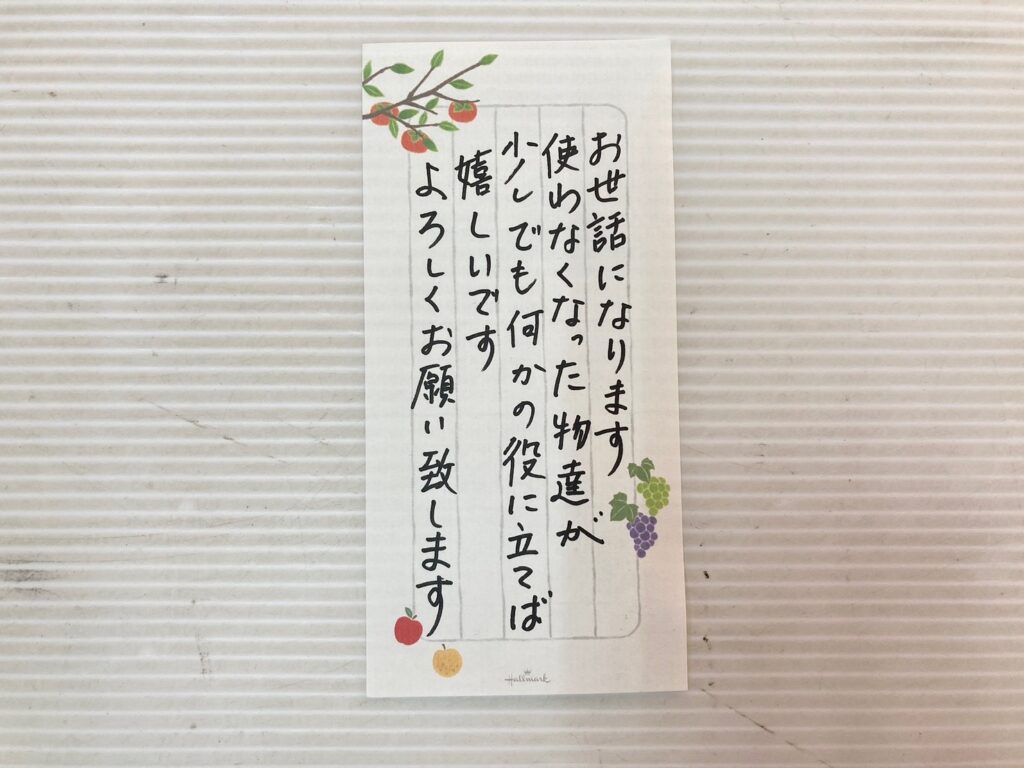 お世話になります
使わなくなった物達が
少しでも何かの役に立てば
嬉しいです
よろしくお願い致します
Hallmark